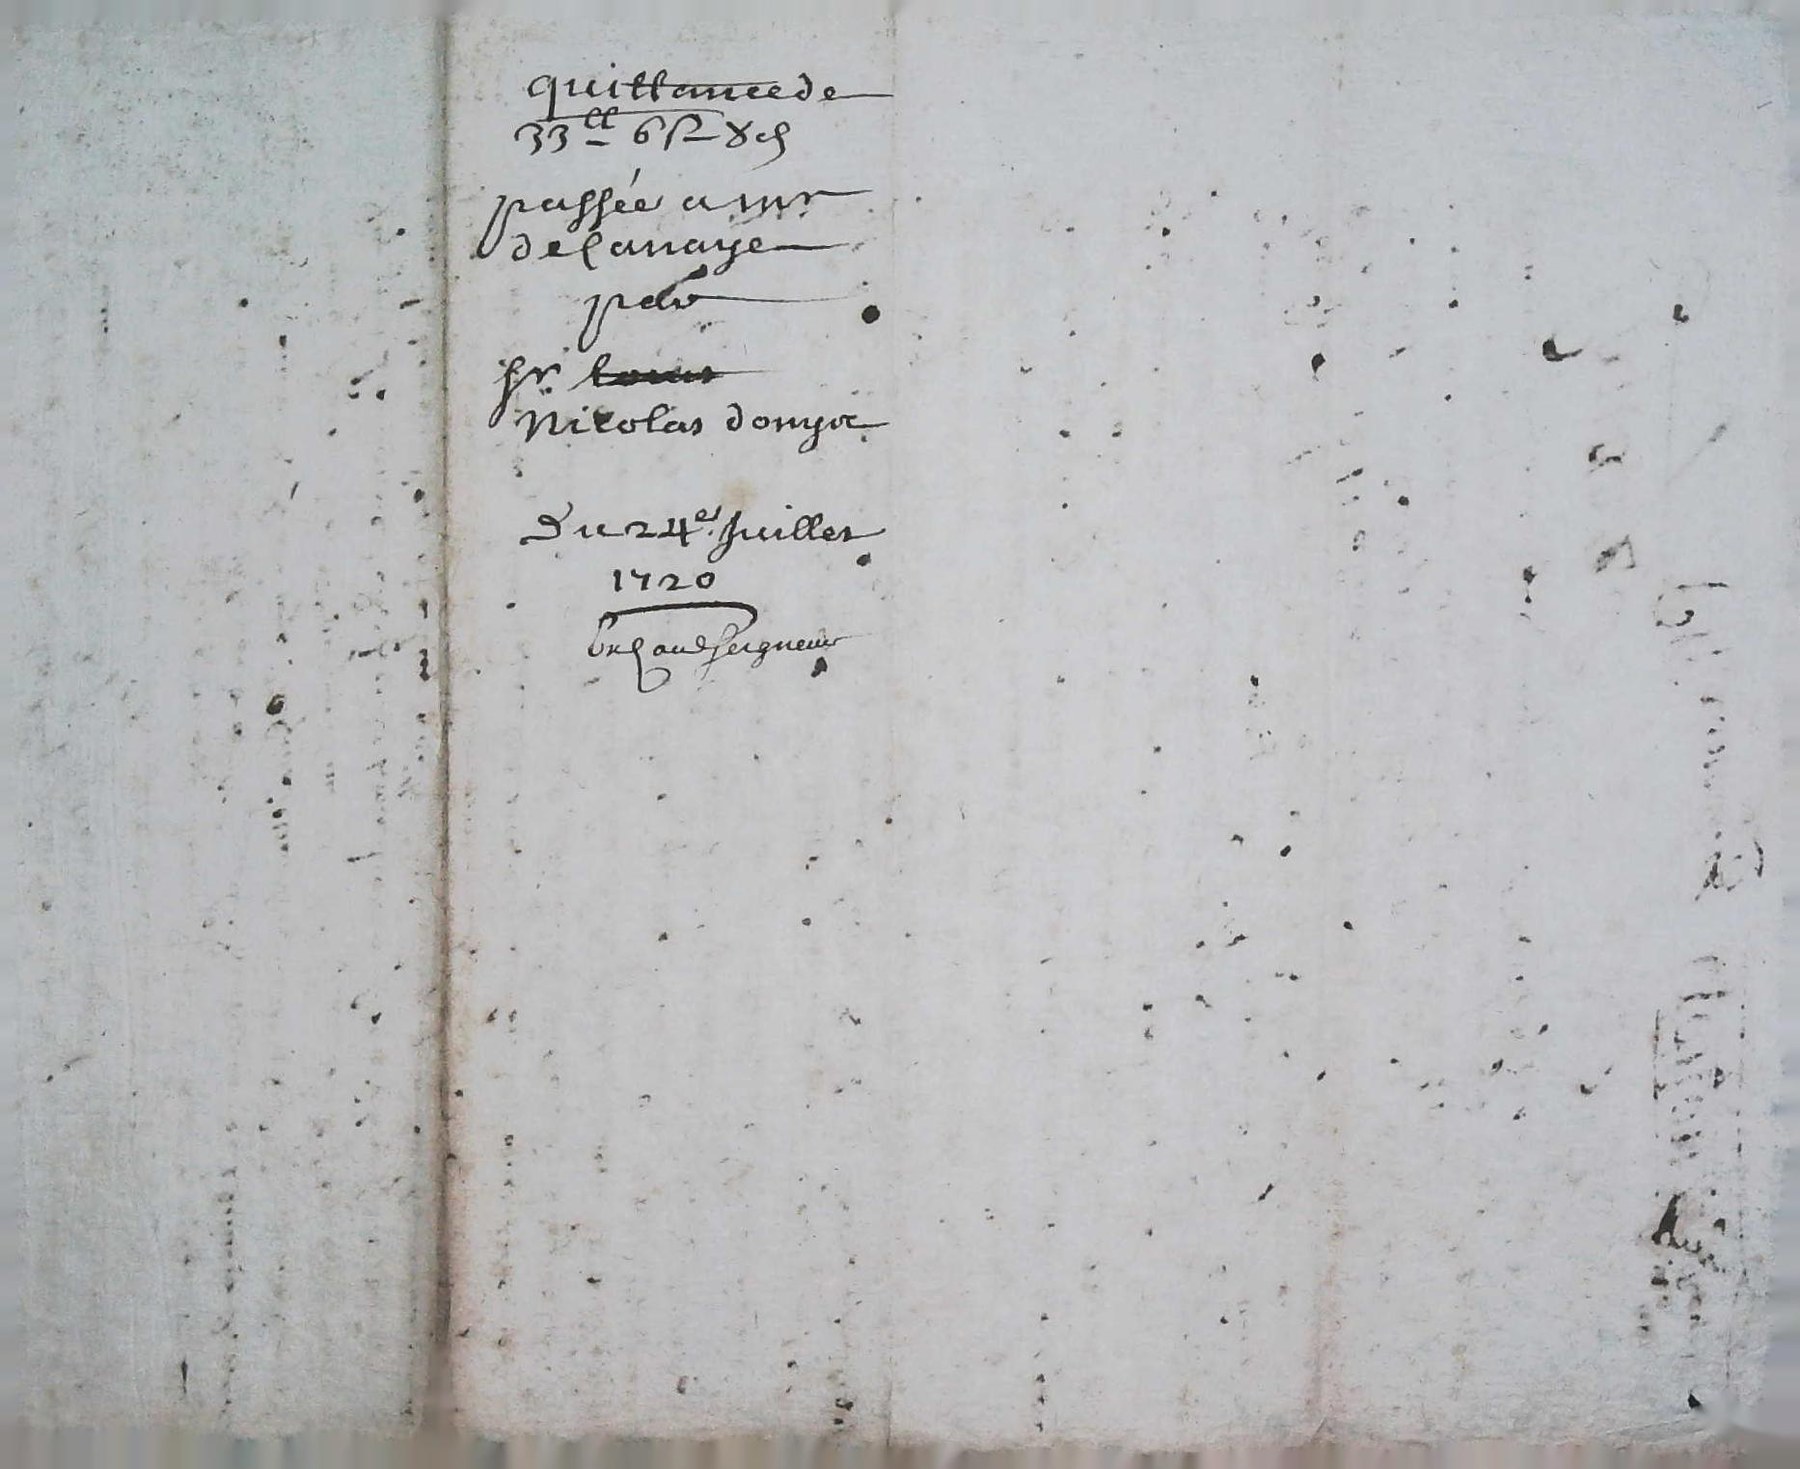 quittance de
33ll 6s 8d
passée a mr
delanaye
par
sr louis
Nicolas donyot
Du 24e Juillet
1720
seigneur